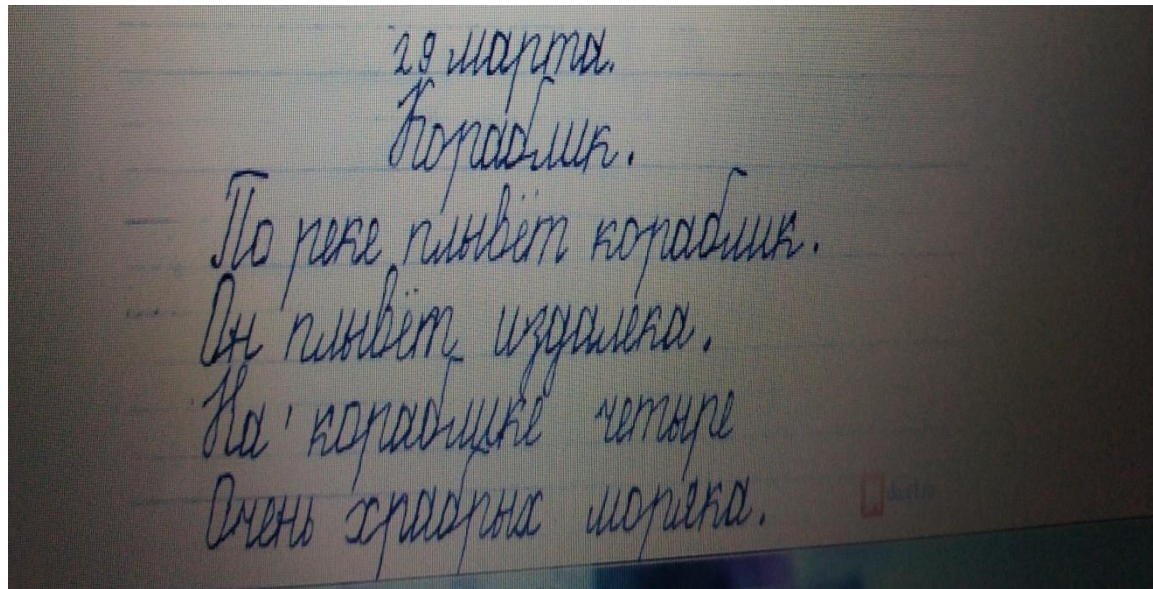 29 марта.
Кораблик.
По реке плывёт кораблик.
Он плывёт издалека.
На кораблике четыре
Очень храбрых моряка.